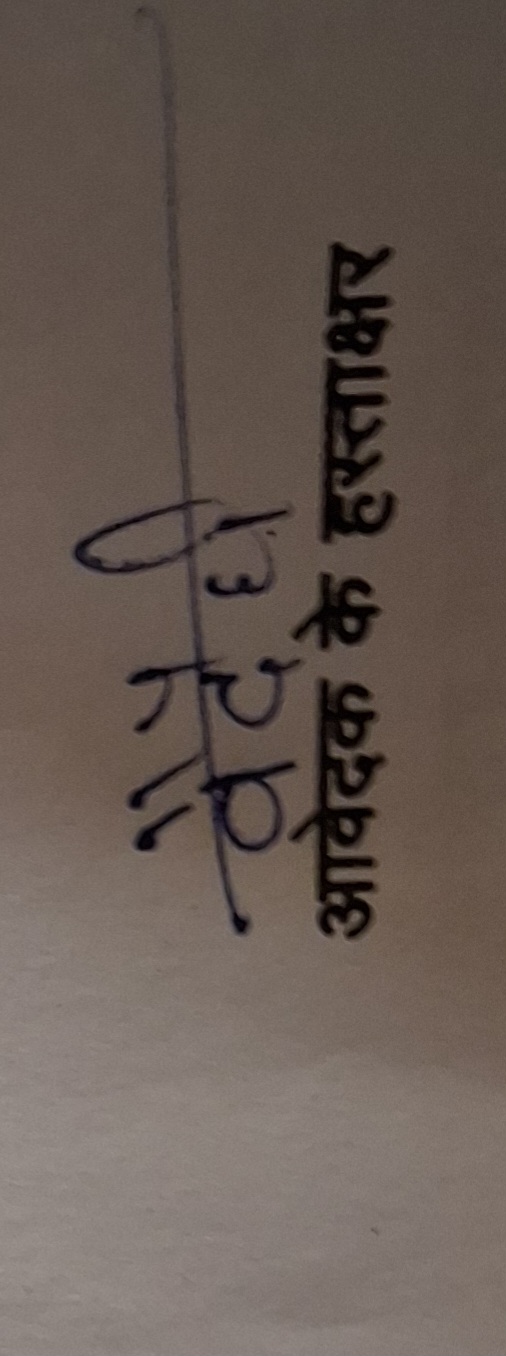 वैदेही
आवेदक के हस्ताक्षर